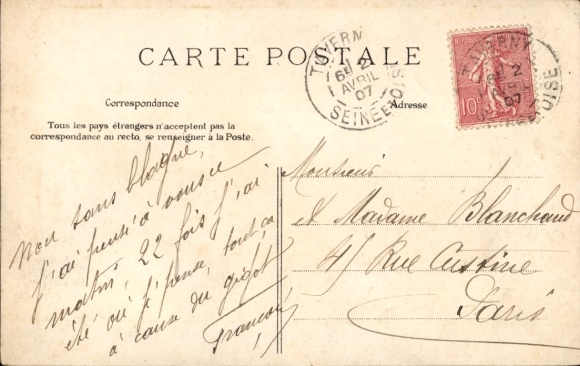 CARTE POSTALE
TAVERNY
6E 2
AVRIL
07
SEINE ET OISE
TAVERNY
6E 2
AVRIL
07
OISE
10
Correspondance
Adresse
Tous les pays étrangers n'acceptent pas la
correspondance au recto, se renseigner à la Poste.
Non sans blague,
j'ai pensé à vous ce
matin, 22 fois j'ai
été où je pense, tout ça
à cause du gigot
Monsieur
et Madame Blanchard
45 Rue Custine
Paris